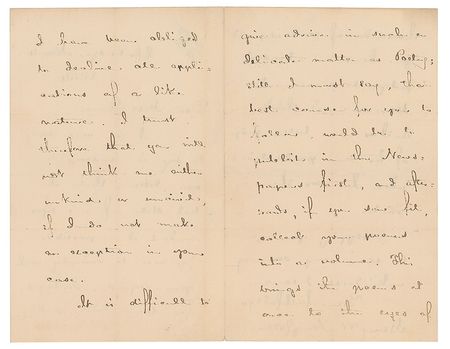 I have been obliged
to decline all appli-
cations of a like
nature. I trust
therefore that you will
not think me either
unkind or uncivil,
if I do not make
an exception in your
case.
It is difficult to
give advice in such a
delicate matter as Poetry;
still I must say, the
best course for you to
follow would be to
publish in the News-
papers first, and after-
wards, if you see fit,
collect your poems
into a volume. This
brings the poems at
once to the eyes of